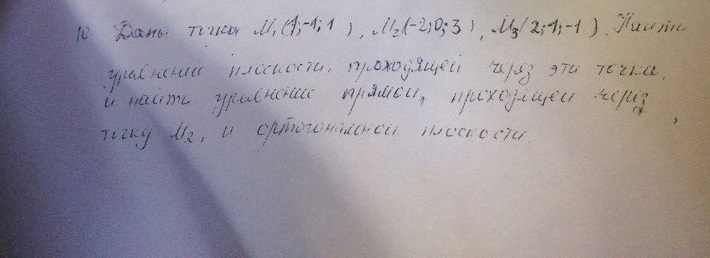 10 Даны точки M₁(1;-1;1), M₂(-2;0;3), M₃(2;1;-1). Найти
уравнение плоскости, проходящей через эти точки,
и найти уравнение прямой, проходящей через
точку M₂, и ортогональной плоскости